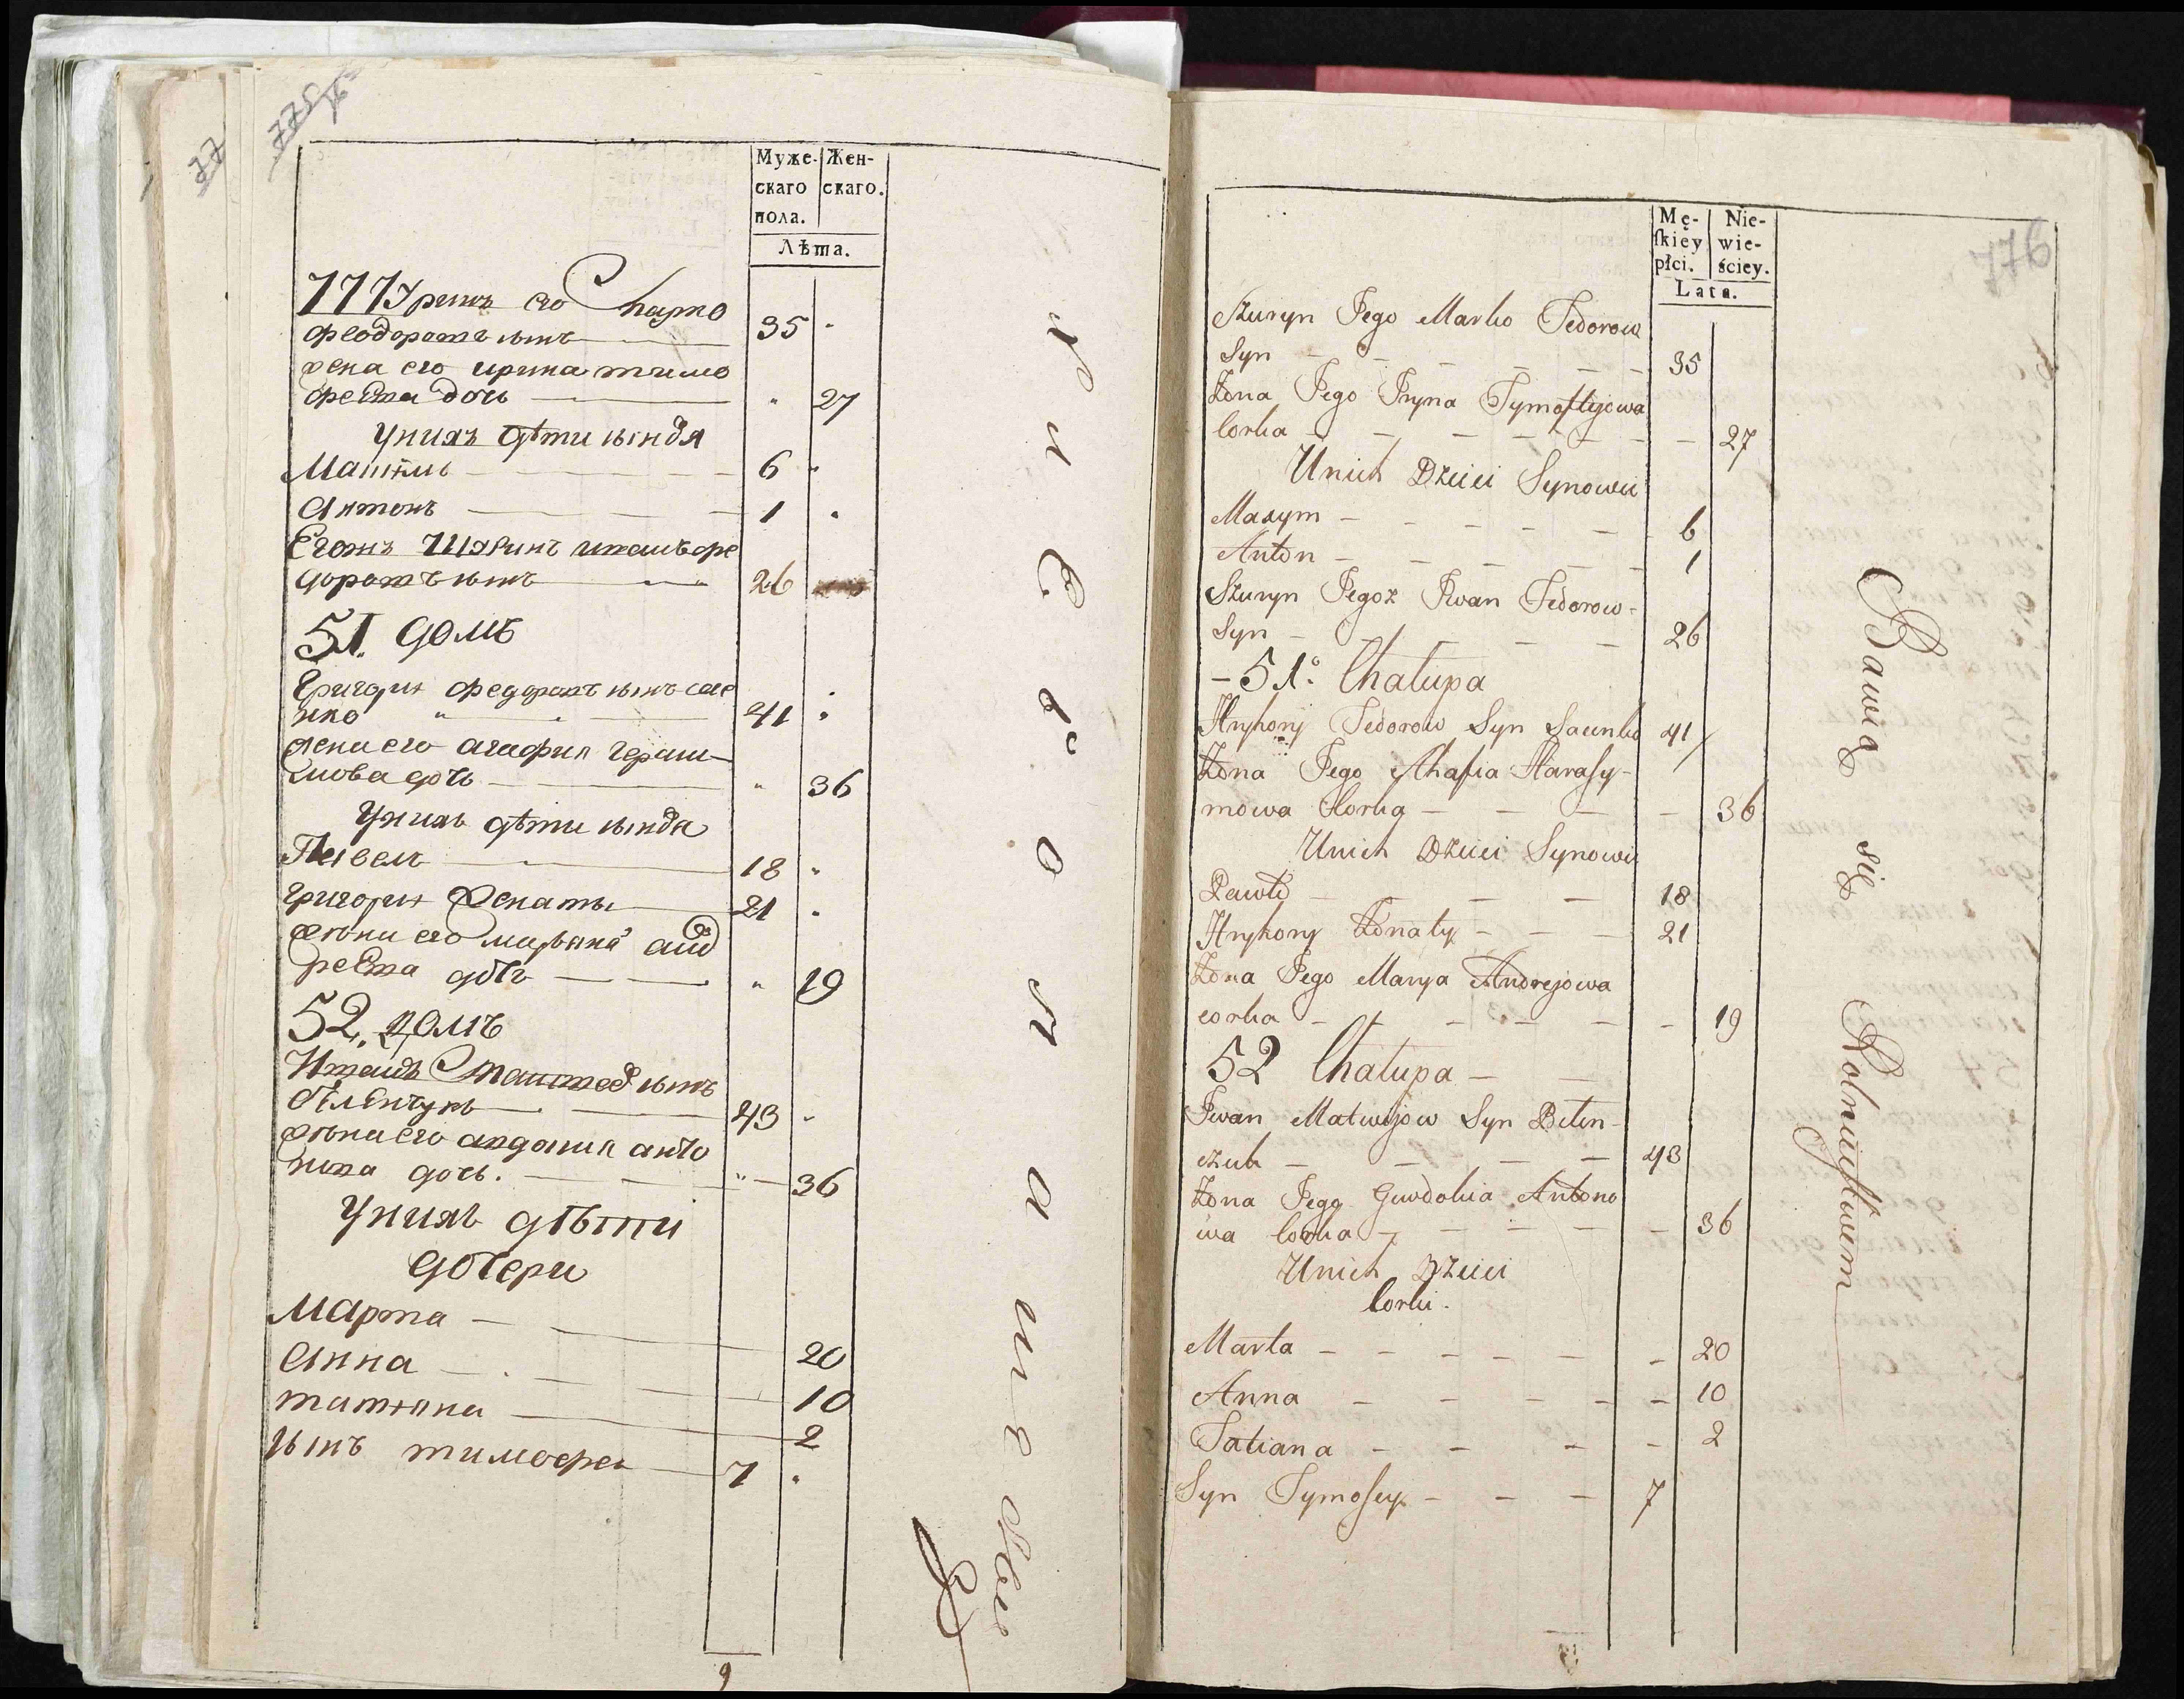 37
775
76
Муже- Жен-
скаго скаго.
пола.
Лѣта.
Шуринъ его
Феодоровъ сынъ 35
жена его ирина тимо
феева дочь 27
У них дѣти сыновя
6
Антонъ 1
Егожъ Шуринъ иванъ фе
доровъ сынъ 26
51. домъ
Григори федоровъ сынъ сае
нко 41
жена его агафия гераси-
мова дочь 36
У них дѣти сыновя
Павелъ 18
Григори женаты 21
жена его маряна анд
реева дочь 19
52. домъ
Иванъ Матвеев сынъ
беленчукъ 43
жена его авдотия анто
нова дочь. 36
У нихъ дѣти
дочери
Марта 20
Анна 10
татияна 2
сынъ тимофеи 7
776
Mę- Nie-
ſkiey wie-
płci. ściey.
Lata.
Szuryn Jego Marko Fedorow
Syn 35
Żona Jego Iryna Tymofiejowa
Corka 27
Unich Dzieci Synowie
Maxym 6
Anton 1
Szuryn Jegoż Iwan Fedorow-
Syn 26
- 51° Chałupa
Hryhory Fedorow Syn Saienko 41
Żona Jego Ahafia Harasy-
mowa Corka 36
Unich Dzieci Synowie
Pawło 18
Hryhory Żonaty 21
Żona Jego Marya Andrejowa
corka 19
52 Chałupa
Iwan Matwijow Syn Bilen-
czuk 43
Żona Jego Ewdokia Antono
wa Corka 36
Unich Dzieci
Corki.
Marta 20
Anna 10
Tatiana 2
Syn Tymofey 7
Bawią się Rolnictwem